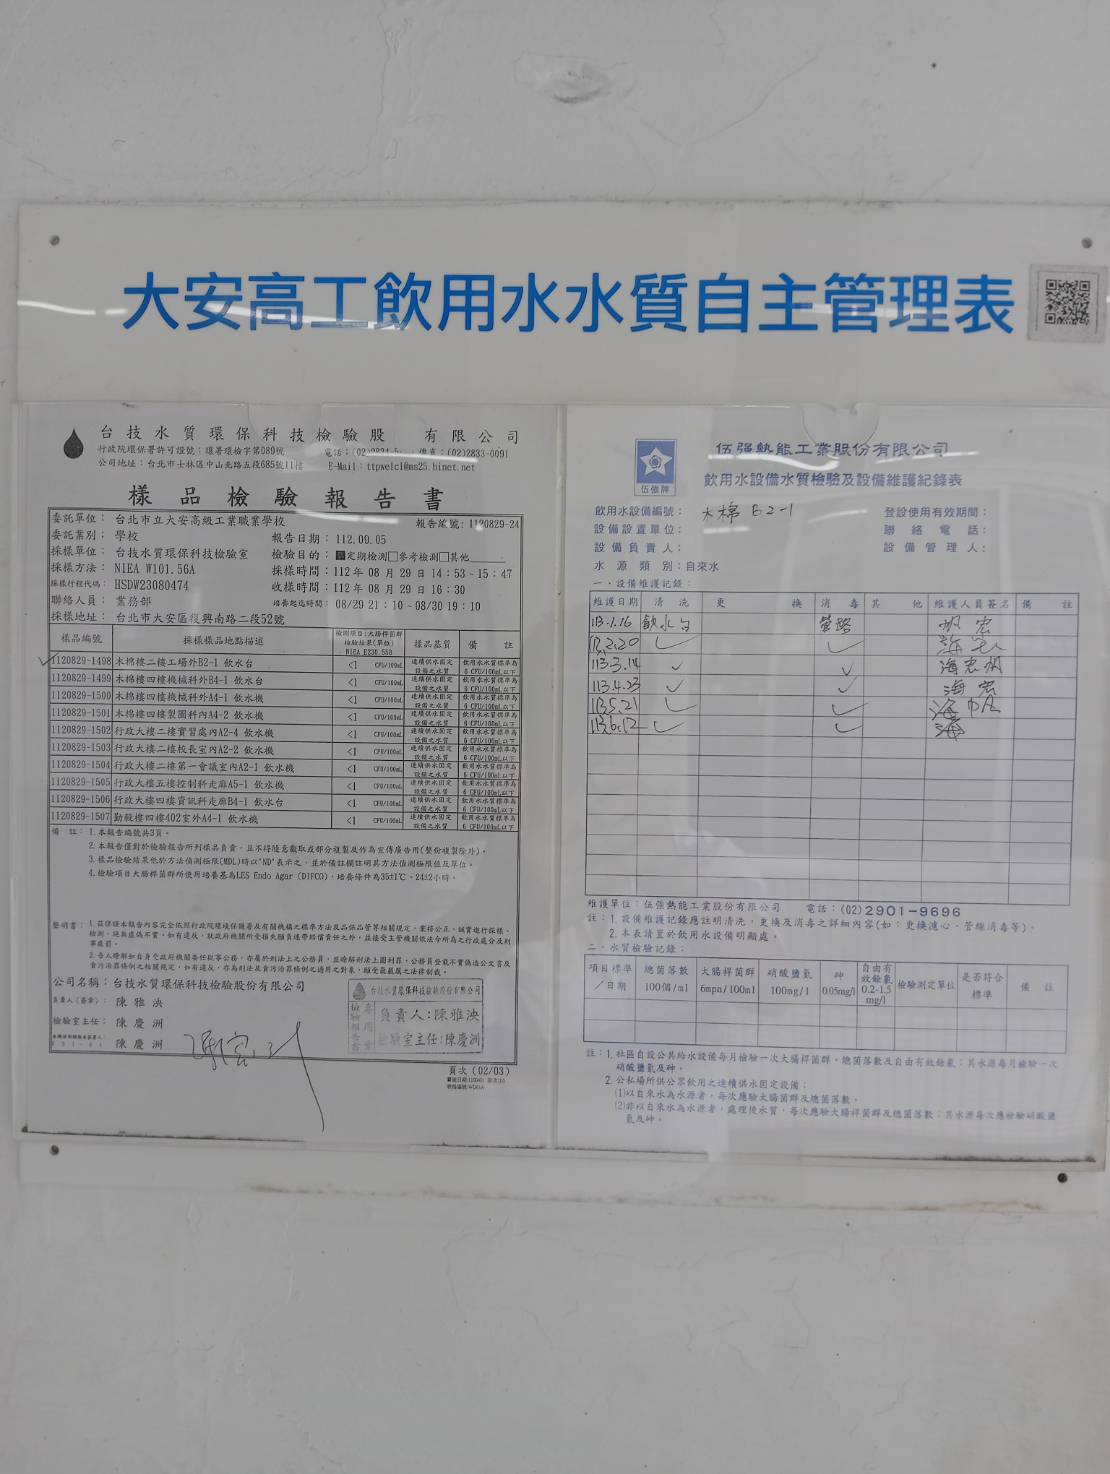 大安高工飲用水水質自主管理表
台技水質環保科技檢驗股 有限公司
行政院環保署許可證號：環署環檢字第089號
電話：(02)2834- 傳真：(02)2833-0091
公司地址：台北市士林區中山北路五段685號11樓 E-Mail：ttpwelcl@ms25.hinet.net
樣品檢驗報告書
委託單位：台北市立大安高級工業職業學校 報告編號：1120829-24
委託業別：學校 報告日期：112.09.05
採樣單位：台技水質環保科技檢驗室 檢驗目的：■定期檢測□參考檢測□其他
採樣方法：NIEA W101.56A 採樣時間：112年08月29日14：53-15：47
採樣行程代碼：HSDW23080474 收樣時間：112年08月29日16：30
聯絡人員：業務部 培養起迄時間：08/29 21：10-08/30 19：10
採樣地址：台北市大安區復興南路二段52號
樣品編號 採樣樣品地點描述 檢測項目:大腸桿菌群 檢驗結果(單位) NIEA E230.55B 樣品基質 備註
1120829-1498 木棉樓二樓工場外B2-1 飲水台 <1 CFU/100mL 連續供水固定設備之水質 飲用水水質標準為6 CFU/100mL以下
1120829-1499 木棉樓四樓機械科外B4-1 飲水台 <1 CFU/100mL 連續供水固定設備之水質 飲用水水質標準為6 CFU/100mL以下
1120829-1500 木棉樓四樓機械科外A4-1 飲水機 <1 CFU/100mL 連續供水固定設備之水質 飲用水水質標準為6 CFU/100mL以下
1120829-1501 木棉樓四樓製圖科內A4-2 飲水機 <1 CFU/100mL 連續供水固定設備之水質 飲用水水質標準為6 CFU/100mL以下
1120829-1502 行政大樓二樓實習處內A2-4 飲水機 <1 CFU/100mL 連續供水固定設備之水質 飲用水水質標準為6 CFU/100mL以下
1120829-1503 行政大樓二樓校長室內A2-2 飲水機 <1 CFU/100mL 連續供水固定設備之水質 飲用水水質標準為6 CFU/100mL以下
1120829-1504 行政大樓二樓第一會議室內A2-1 飲水機 <1 CFU/100mL 連續供水固定設備之水質 飲用水水質標準為6 CFU/100mL以下
1120829-1505 行政大樓五樓控制科走廊A5-1 飲水機 <1 CFU/100mL 連續供水固定設備之水質 飲用水水質標準為6 CFU/100mL以下
1120829-1506 行政大樓四樓資訊科走廊B4-1 飲水台 <1 CFU/100mL 連續供水固定設備之水質 飲用水水質標準為6 CFU/100mL以下
1120829-1507 勤毅樓四樓402室外A4-1 飲水機 <1 CFU/100mL 連續供水固定設備之水質 飲用水水質標準為6 CFU/100mL以下
備 註：1.本報告編號共3頁。
2.本報告僅對於檢驗報告所列樣品負責，且不得隨意截取或部分複製及作為宣傳廣告用(整份複製除外)。
3.樣品檢驗結果低於方法偵測極限(MDL)時以"ND"表示之，並於備註欄註明其方法偵測極限值及單位。
4.檢驗項目大腸桿菌群所使用培養基為LES Endo Agar (DIFCO)，培養條件為35±1℃、24±2小時。
聲明書：
公司名稱：台技水質環保科技檢驗股份有限公司
負責人(簽章)：陳雅泱
檢驗室主任：陳慶洲
陳慶洲
台技水質環保科技檢驗股份有限公司
檢驗報告書
專用章
負責人：陳雅泱
檢驗室主任：陳慶洲
頁次(02/03)
伍強牌
伍强熱能工業股份有限公司
飲用水設備水質檢驗及設備維護紀錄表
飲用水設備編號：木棉 B2-1 登設使用有效期間：
設備設置單位： 聯絡電話：
設備負責人： 設備管理人：
水源類別：自來水
一、設備維護記錄：
維護日期 清洗 更換 消毒 其他 維護人員簽名 備註
113.1.16 飲水台 管路
113.2.20
113.3.14
113.4.23
113.5.21
113.6.12
維護單位：伍强熱能工業股份有限公司 電話：(02)2901-9696
註：1.設備維護記錄應註明清洗、更換及消毒之詳細內容(如：更換濾心、管線消毒等)。
2.本表請置於飲用水設備明顯處。
二、水質檢驗記錄：
項目標準／日期 總菌落數100個/ml 大腸桿菌群6mpn/100ml 硝酸鹽氮100mg/l 砷0.05mg/l 自由有效餘氯0.2-1.5mg/l 檢驗測定單位 是否符合標準 備註
註：1.社區自設公共給水設備每月檢驗一次大腸桿菌群、總菌落數及自由有效餘氯；其水源每月檢驗一次
硝酸鹽氮及砷。
2.公私場所供公眾飲用之連續供水固定設備：
(1)以自來水為水源者，每次應驗大腸菌群及總菌落數。
(2)非以自來水為水源者，處理後水質，每次應驗大腸桿菌群及總菌落數；其水源每次應檢驗硝酸鹽
氮及砷。